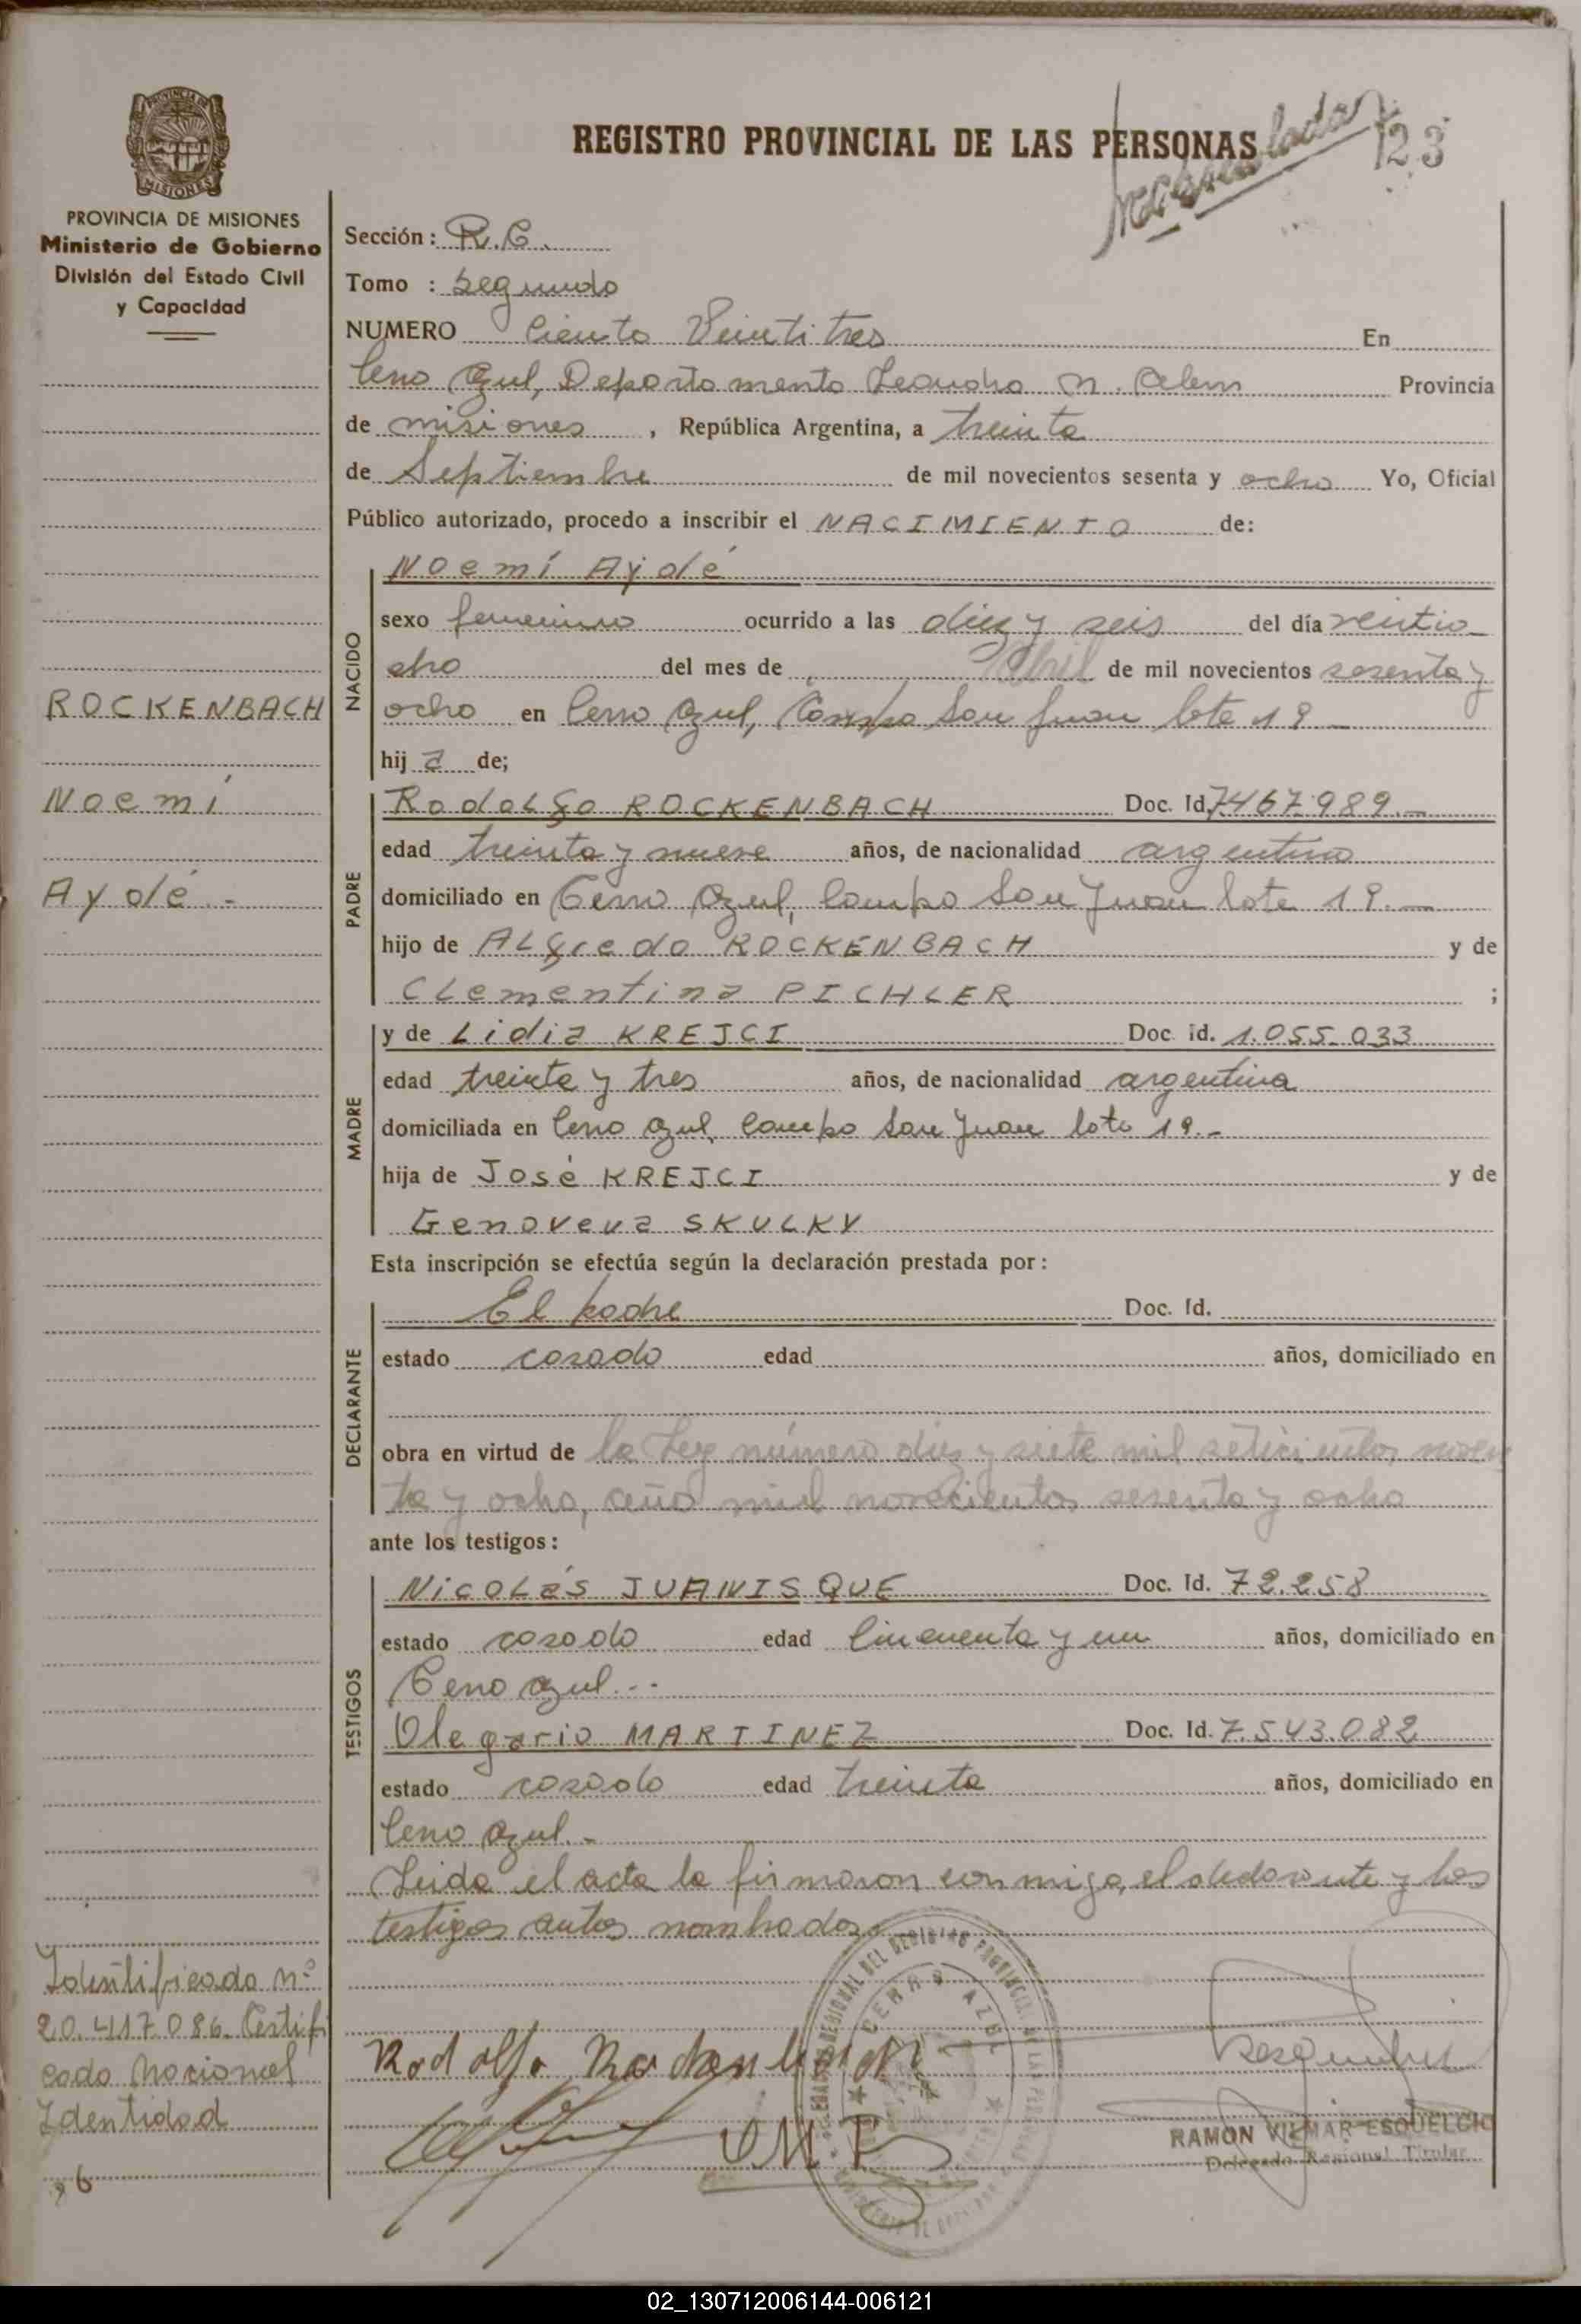 REGISTRO PROVINCIAL DE LAS PERSONAS
123
PROVINCIA DE MISIONES
Ministerio de Gobierno
División del Estado Civil
y Capacidad
Sección: R.C.
Tomo : Segundo
NUMERO Ciento Veintitres En
Cerro Azul, Departamento Leandro N. Alem Provincia
de misiones , República Argentina, a treinta
de Septiembre de mil novecientos sesenta y ocho Yo, Oficial
Público autorizado, procedo a inscribir el NACIMIENTO de:
NACIDO
Noemí Aydé
sexo femenino ocurrido a las diez y seis del día veintio
cho del mes de Abril de mil novecientos sesenta y
ocho en Cerro Azul, Campo San Juan lote 19
hij a de;
ROCKENBACH
Noemí
Aydé.-
PADRE
Rodolfo ROCKENBACH Doc. Id. 7467989.-
edad treinta y nueve años, de nacionalidad argentino
domiciliado en Cerro Azul, Campo San Juan lote 19.-
hijo de Alfredo ROCKENBACH y de
Clementina PICHLER ;
MADRE
y de Lidia KREJCI Doc. id. 1.055.033
edad treinta y tres años, de nacionalidad argentina
domiciliada en Cerro Azul, Campo San Juan lote 19.-
hija de José KREJCI y de
Genoveva SKULKY
Esta inscripción se efectúa según la declaración prestada por:
DECLARANTE
El padre Doc. Id.
estado casado edad años, domiciliado en
obra en virtud de la Ley número diez y siete mil setecientos noven
ta y ocho, año mil novecientos sesenta y ocho
ante los testigos:
TESTIGOS
Nicolás JUANISQUE Doc. Id. 72.258
estado casado edad Cincuenta y un años, domiciliado en
Cerro Azul.--
Olegario MARTINEZ Doc. Id. 7.543.082
estado casado edad treinta años, domiciliado en
Cerro Azul.-
Leida el acta la firmaron conmigo, el declarante y los
testigos antes nombrados
Identificada Nº
20.417.086. Certifi
cado Nacional
Identidad
Rodolfo Rockenbach
CERRO AZUL
RAMON VILMAR ESQUELCIO
Delegado Regional Titular
02_130712006144-006121